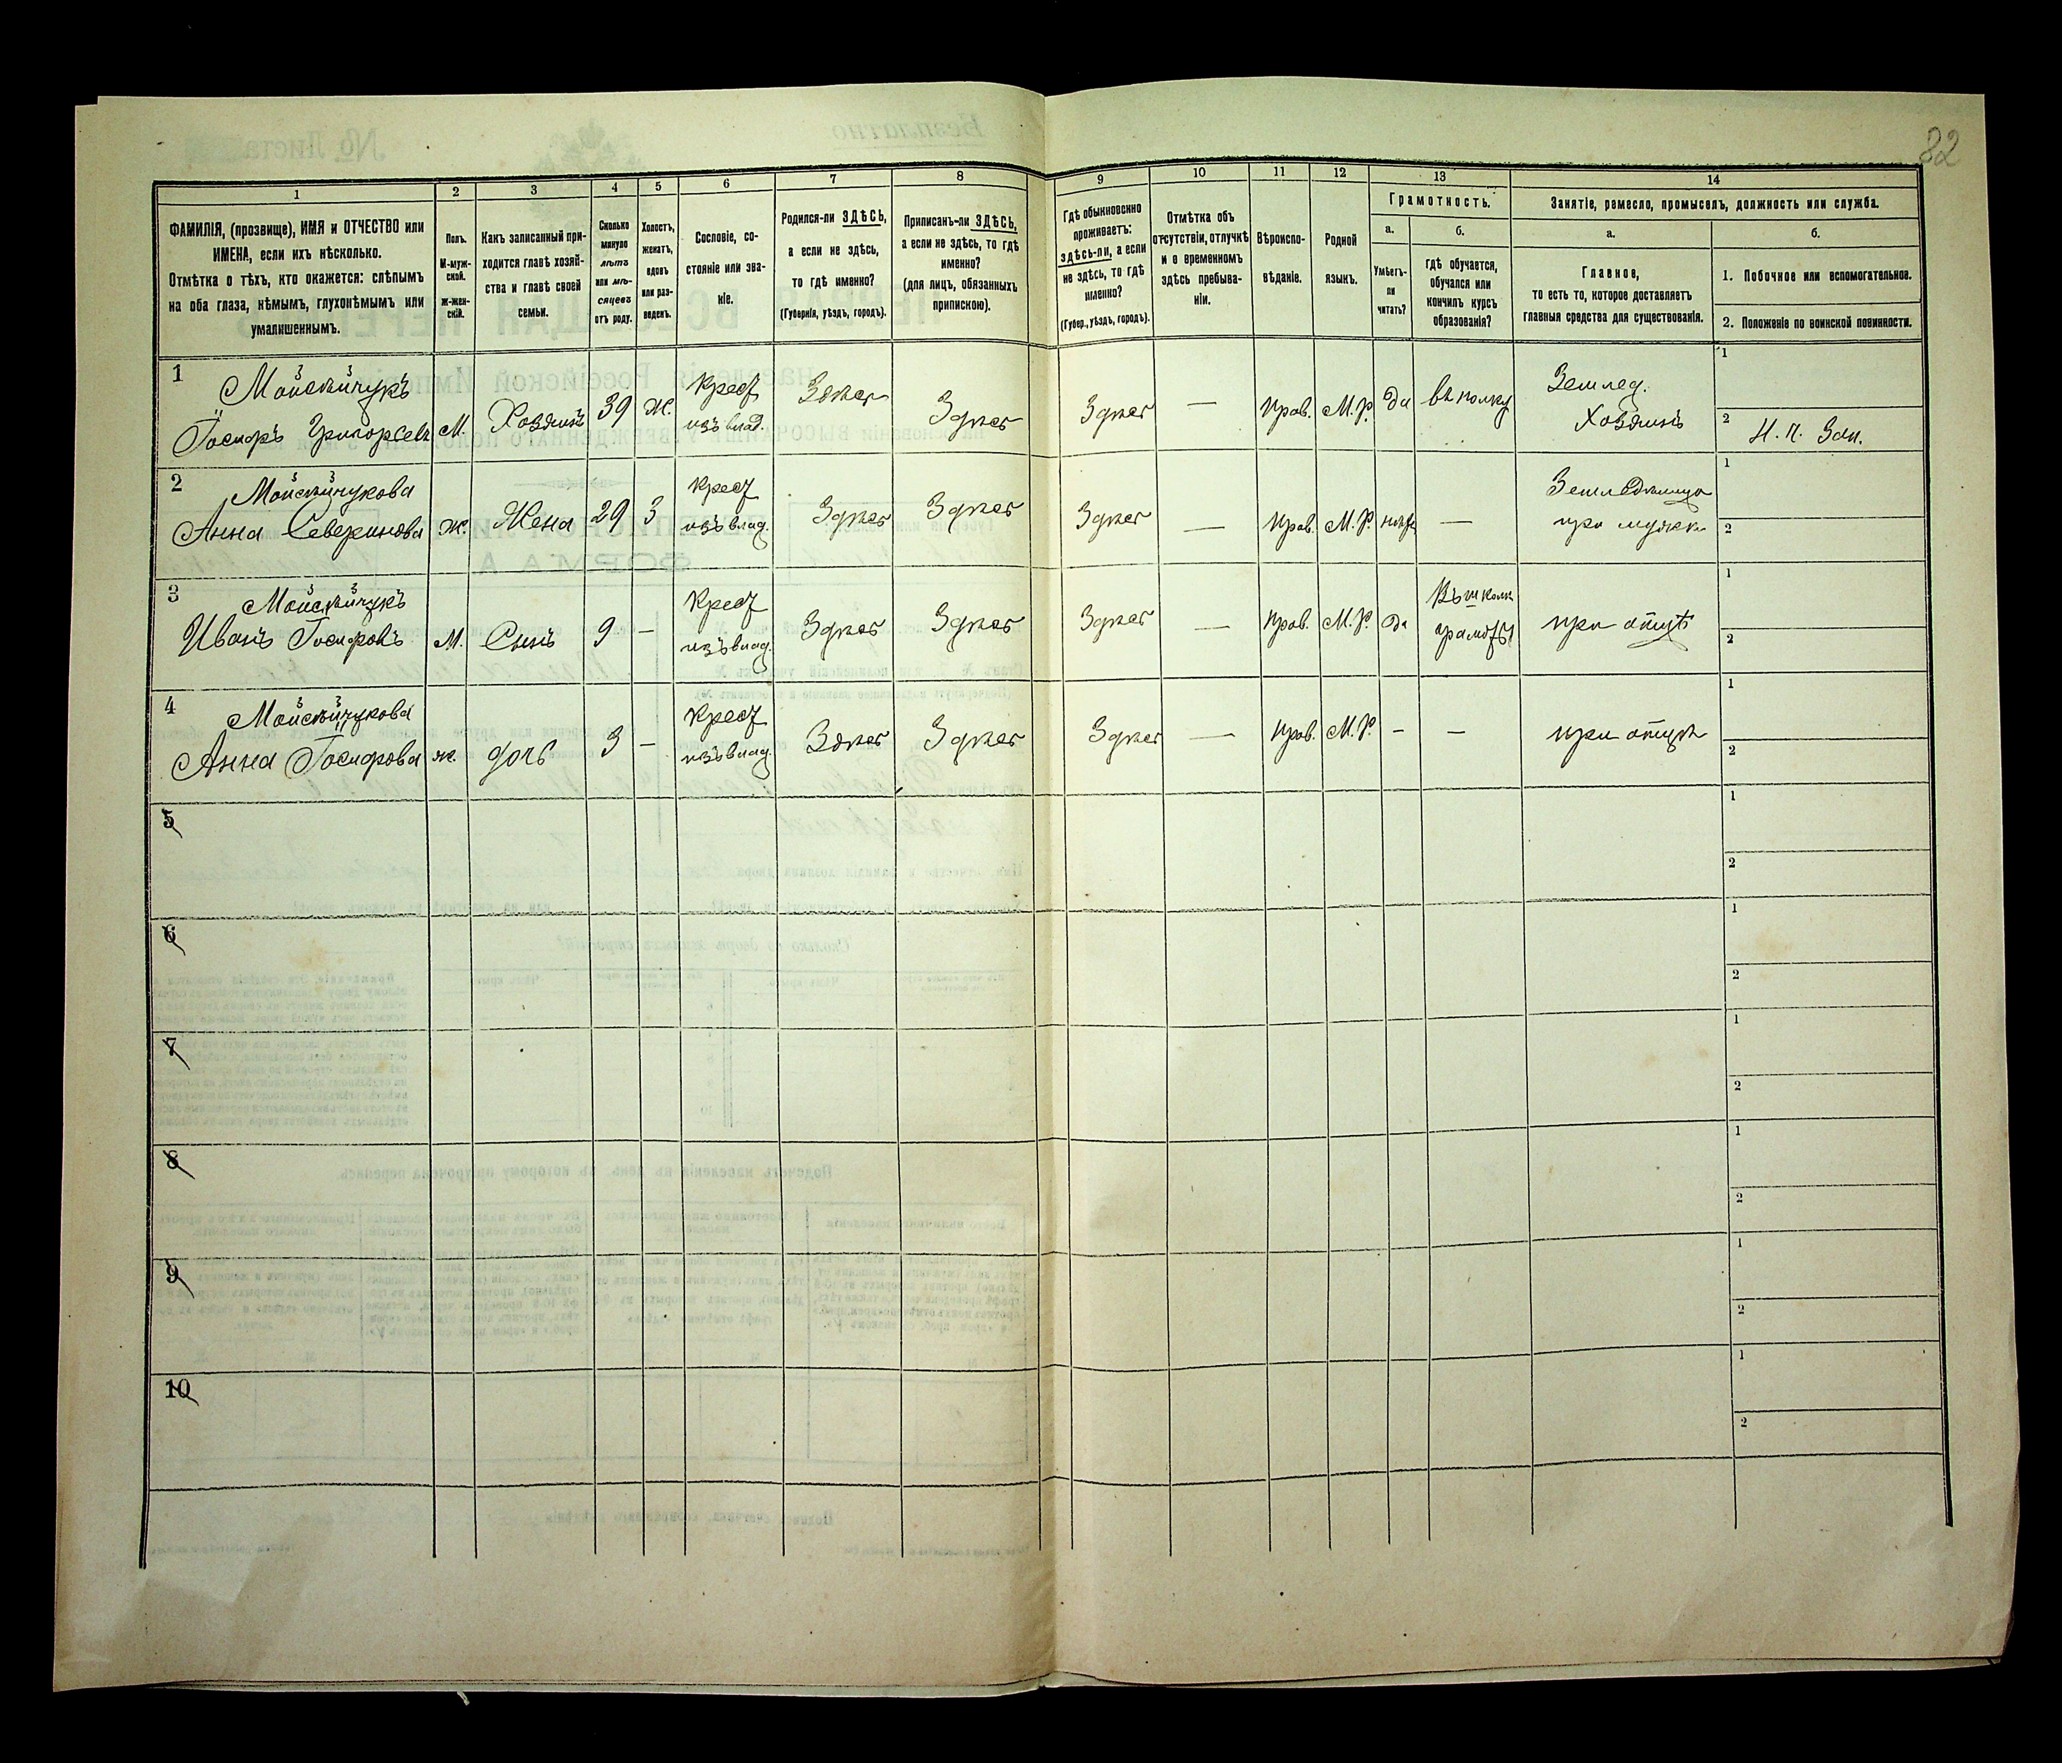 82
1
2
3
4
5
6
7
8
9
10
11
12
13
14
ФАМИЛІЯ, (прозвище), ИМЯ и ОТЧЕСТВО или
ИМЕНА, если ихъ нѣсколько.
Отмѣтка о тѣхъ, кто окажется: слѣпымъ
на оба глаза, нѣмымъ, глухонѣмымъ или
умалишеннымъ.
Полъ.
М-муж-
ской.
Ж-жен-
скій.
Какъ записанный при-
ходится главѣ хозяй-
ства и главѣ своей
семьи.
Сколько
минуло
лѣтъ
или мѣ-
сяцевъ
отъ роду.
Холостъ,
женатъ,
вдовъ
или раз-
веденъ.
Сословіе, со-
стояніе или зва-
ніе.
Родился-ли ЗДѢСЬ,
а если не здѣсь,
то гдѣ именно?
(Губернія, уѣздъ, городъ).
Приписанъ-ли ЗДѢСЬ,
а если не здѣсь, то гдѣ
именно?
(для лицъ, обязанныхъ
припискою).
Гдѣ обыкновенно
проживаетъ:
здѣсь-ли, а если
не здѣсь, то гдѣ
именно?
(Губер., уѣздъ, городъ).
Отмѣтка объ
отсутствіи, отлучкѣ
и о временномъ
здѣсь пребыва-
ніи.
Вѣроиспо-
вѣданіе.
Родной
языкъ.
Грамотность.
а.
Умѣетъ-
ли
читать?
б.
гдѣ обучается,
обучался или
кончилъ курсъ
образованія?
Занятіе, ремесло, промыселъ, должность или служба.
а.
Главное,
то есть то, которое доставляетъ
главныя средства для существованія.
б.
1. Побочное или вспомогательное.
2. Положеніе по воинской повинности.
1
Мойсѣйчукъ
Іосифъ Григорьевъ
М.
Хозяинъ
39
Ж.
Крест
изъ влад.
Здѣсь
Здѣсь
Здѣсь
—
Прав.
М.Р.
да
въ полку
Землед.
Хозяинъ
1
2
Н. П. Зап.
2
Мойсѣйчукова
Анна Северинова
Ж.
Жена
29
З
Крест
изъ влад.
Здѣсь
Здѣсь
Здѣсь
—
Прав.
М.Р.
нѣтъ
—
при мужѣ
1
2
3
Мойсѣйчукъ
Иванъ Іосифовъ
М.
Сынъ
9
—
Крест
изъ влад.
Здѣсь
Здѣсь
Здѣсь
—
Прав.
М.Р.
да
Въ школѣ
грамоты
при отцѣ
1
2
4
Мойсѣйчукова
Анна Іосифова
ж.
дочь
3
—
Крест
изъ влад.
Здѣсь
Здѣсь
Здѣсь
—
Прав.
М.Р.
—
—
при отцѣ
1
2
5
1
2
6
1
2
7
1
2
8
1
2
9
1
2
10
1
2